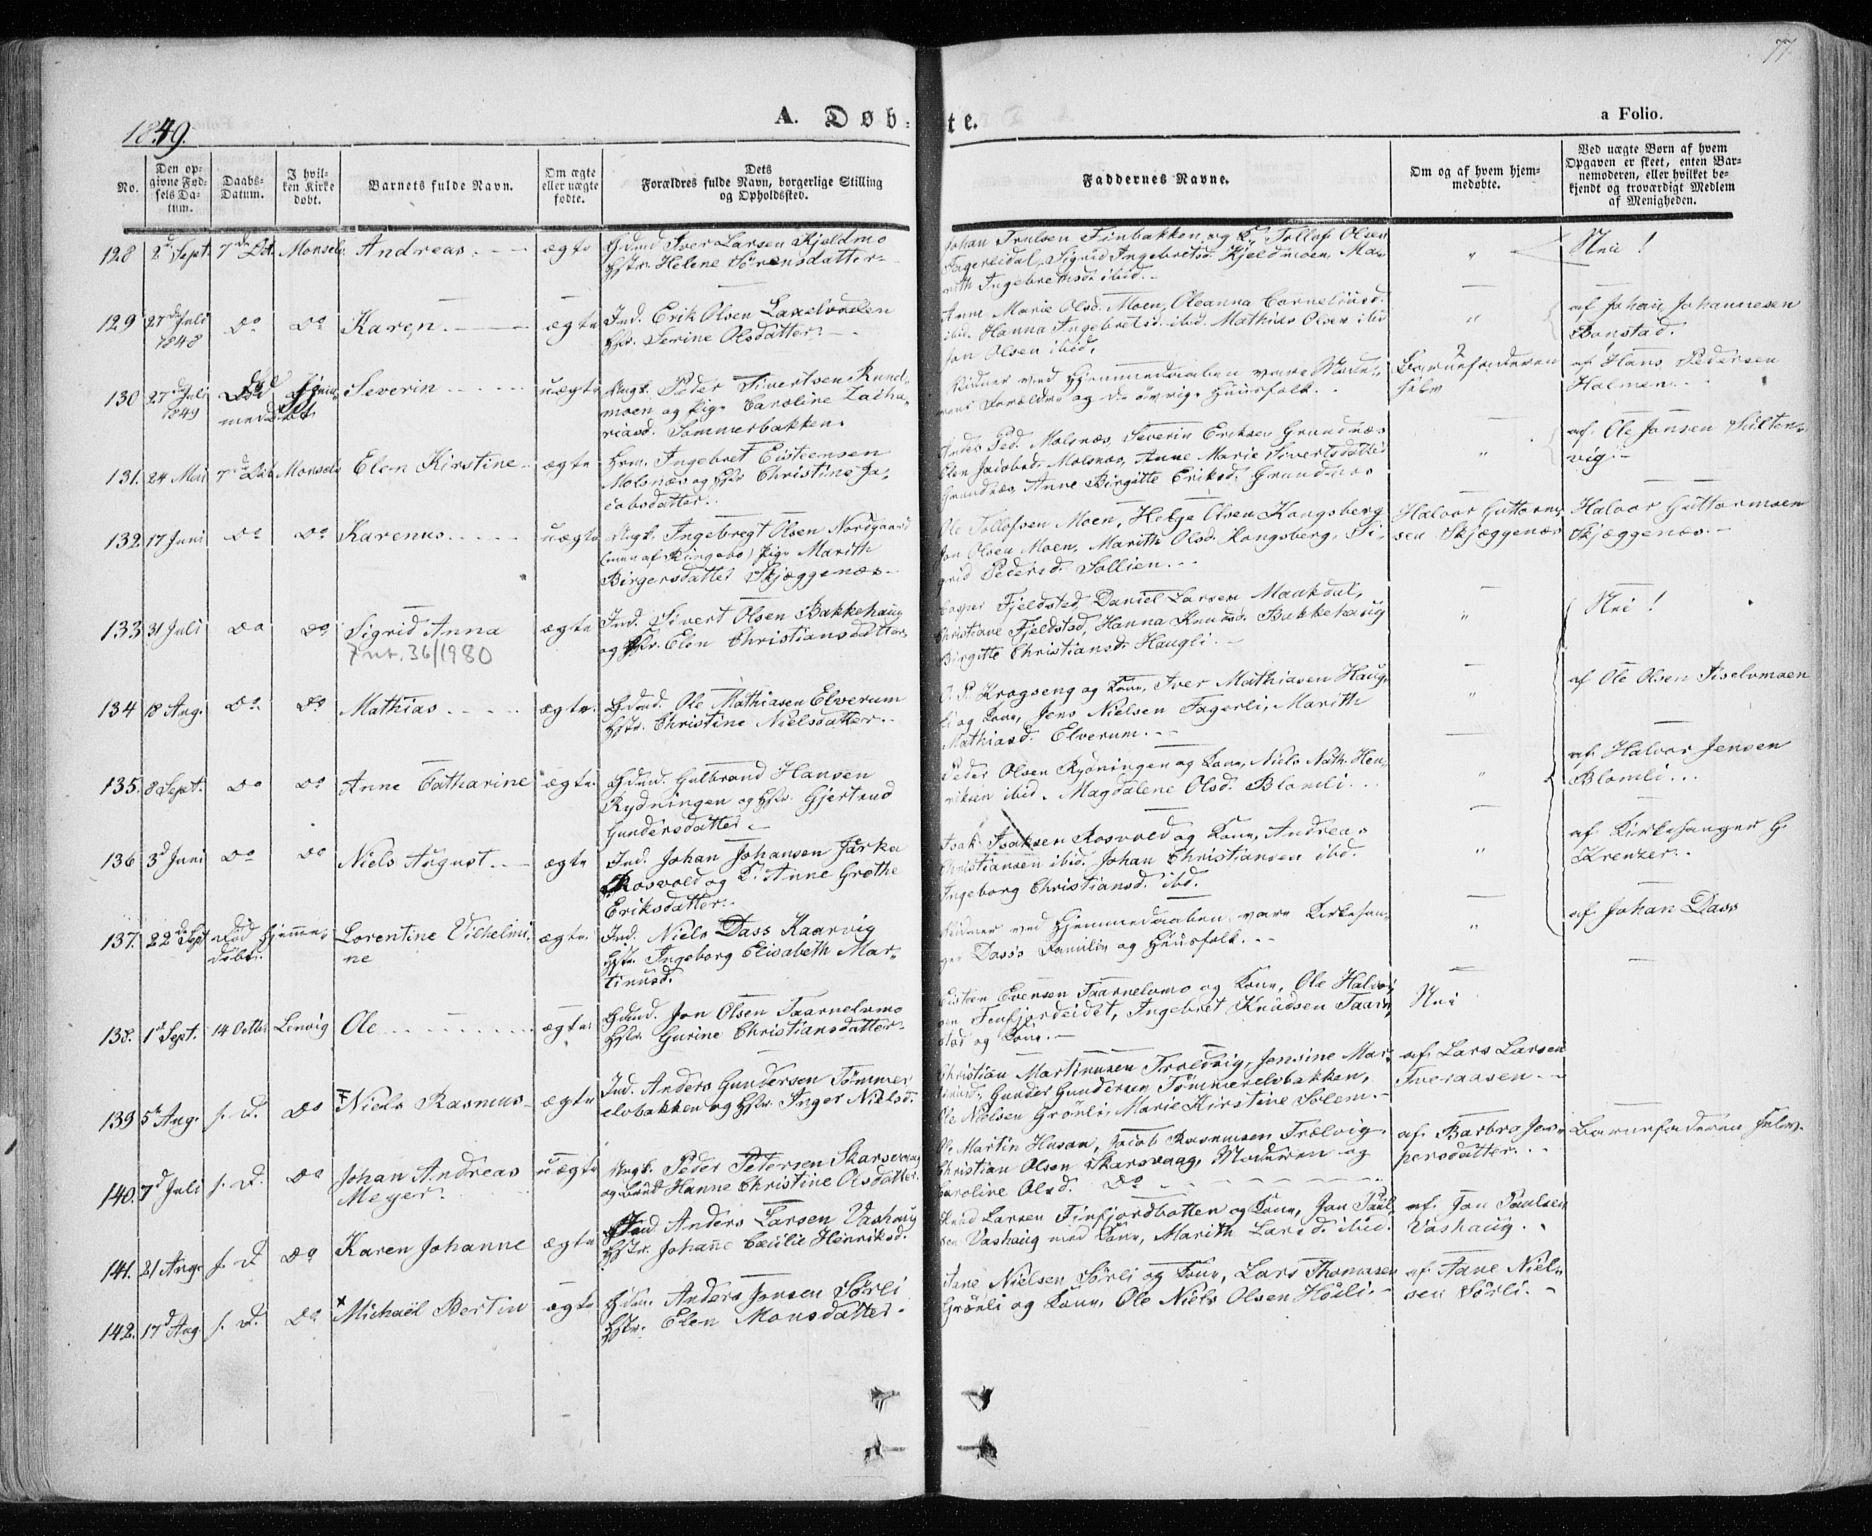 77
1849.
A. Døb-
te.
a Folio.
No.
Den op-
givne Fød-
sels Da-
tum.
Daabs-
Datum.
I hvil-
ken Kirke
døbt.
Barnets fulde Navn.
Om ægte
eller uægte
fødte.
Dets
Forældres fulde Navn, borgerlige Stilling
og Opholdssted.
Faddernes Navne.
Om og af hvem hjem-
medøbte.
Ved uægte Børn af hvem
Opgaven er skeet, enten Bar-
nemoderen, eller hvilket be-
kjendt og troværdigt Medlem
af Menigheden.
128 2d Sept. 7de Oct. Monselv Andreas ægte
Gdmd Iver Larsen Kjeldmo
Hstr. Helene Sörensdatter
Johan Trulsen Finbakken og K., Tollof Olsen
Fagerlidal, Sigrid Ingebretsd. Kjeldmoen, Ma-
rith Ingebretsd. ibid.
" Nei!
129 27de Juli 1848 Do Do Karen ægte
Ind. Erik Olsen Laxelvdalen
Hstr. Serine Olsdatter
Ann Marie Olsd. Moen, Oleanna Corneliusd.
ibid. Hanna Ingebretsd. ibid. Mathias Olsen ibid
Jon Olsen ibid.
" af Johan Johannesen
Bonstad.
130 27de Juli 1849 Severin uægte
Ungk. Peder Sivertsen Rund-
moen og Pige Caroline Zacha-
riasd. Sommerbakken.
Vidner ved Hjemmedaaben vare Mode-
rens Forældre og de övrige Huusfolk.
Barnefaderen
selv
af Hans Pedersen
Holmen
131. 24 Mai 7de Oct. Monselv Elen Kirstine ægte
Hrm. Ingebret Eisteensen
Molsnæs og Hstr Christine Ja-
cobsdatter
Anders Ped. Molsnæs, Severin Eriksen Grundnæs
Elen Jacobsd. Molsnæs, Anne Marie Sivertsdatter
Grundnæs, Anne Birgitte Eriksd. Grundnæs
" af Ole Jansen Sulten-
vig.
132 17 Juni Do Do Karenus uægte
Ungk. Ingebregt Olsen Nordgaard
Pige Marith
Birgersdatter Skjæggenæs
Ole Tollofsen Moen, Helge Olsen Kongsberg
Jon Olsen Moen, Marith Olsd. Kongsberg, Si-
grid Pedersd. Sollien.
Halvor Guttorm-
sen Skjæggenæs
Halvor Guttormsen
Skjæggenæs
133 31 Juli Do Do Sigrid Anna ægte
Fnt. 36/1980
Ind. Sivert Olsen Bakkehaug
og Hstr. Elen Christiansdatter
Casper Fjeldstad, Daniel Larsen Maukdal,
Christiane Fjeldstad, Hanna Knudsd. Bakkehaug
Birgitte Christiansd. Haugli.
" Nei!
134 18 Aug. Do Do Mathias ægte
Gdmd. Ole Mathiasen Elverum
Hstr. Christine Nielsdatter
O. P. Krogseng og Kone, Iver Mathiasen Haug-
li og Kone, Jens Nielsen Fagerli, Marith
Mathiasd. Elverum.
" af Ole Olsen Iselvmoen
135. 8 Sept. Do Do Anne Catharine ægte
Gdmd. Gulbrand Hansen
Rydningen og Hstr. Gjertrud
Gundersdatter
Peder Olsen Rydningen og Kone, Niels Nath. Hen-
riksen ibid. Magdalene Olsd. Blomli
" af Halvor Jensen
Blomli
136 3d Juni Do Do Niels August ægte
Ind. Johan Johansen Järka
Rosvold og K. Anne Grethe
Eriksdatter
Isak Isaksen Rosvold og Kone, Andreas
Christiansen ibid. Johan Christiansen ibid.
Ingeborg Christiansd. ibd.
" af Kirkesanger G.
Kreutzer
137. 22de Sept död hjemme-
döbt. Lorentine Vilhelmi-
ne ægte
Ind. Niels Dass Kaarvig
Hstr. Ingeborg Elisabeth Mar-
tinusd.
Vidner ved Hjemmedaaben vare Kirkesan-
ger Dass's Familie og Huusfolk.
" af Johan Dass
138. 1st Sept. 14 Octbr Lenvig Ole ægte
Gdmd. Jon Olsen Taarnelvmo
Hstr. Gurine Christiansdatter
Eisteen Evensen Taarnelvmo og Kone, Ole Halvor-
sen Finfjordeidet, Ingebret Knudsen Taarn-
stad og Kone.
Nei
139 5te Aug. s. D. Do Niels Rasmus ægte
Ind. Anders Gundersen Tömmer-
elvbakken og Hstr. Inger Nielsd.
Christian Martinusen Troldvig, Jensine Mar-
tinusd. Gunder Gundersen Tömmerelvbakken,
Ole Nielsen Grönli, Marie Kirstine Solem.
af Lars Larsen
Tveraasen
140. 7d Juli s. D. Do Johan Andreas
Meyer uægte
Ungk. Peder Petersen Skarsvaag
og Hanne Christine Olsdatter
Ole Martin Husan, Jacob Rasmusen Trælvig
Christian Olsen Skarsvaag, Moderen og
Caroline Olsd. Do
af Barbra Jes-
persdatter
Barnefaderen selv
141. 21 Aug. s. D. Do Karen Johanne ægte
Ind Anders Larsen Vashaug
Hstr. Johanne Cæcilie Henriksd.
Knud Larsen Finfjordbotten og Kone, Jon Paul-
sen Vashaug med Kone, Marith Larsd. ibid.
af Jon Paulsen
Vashaug
142. 17d Aug s. D. Do Michaël Bertin ægte
Anders Jensen Sörli
Hstr. Elen Monsdatter
Tane Nielsen Sörli og Kone, Lars Thomasen
Grönli og Kone, Ole Niels Olsen Högli
af Tane Niel-
sen Sörli.